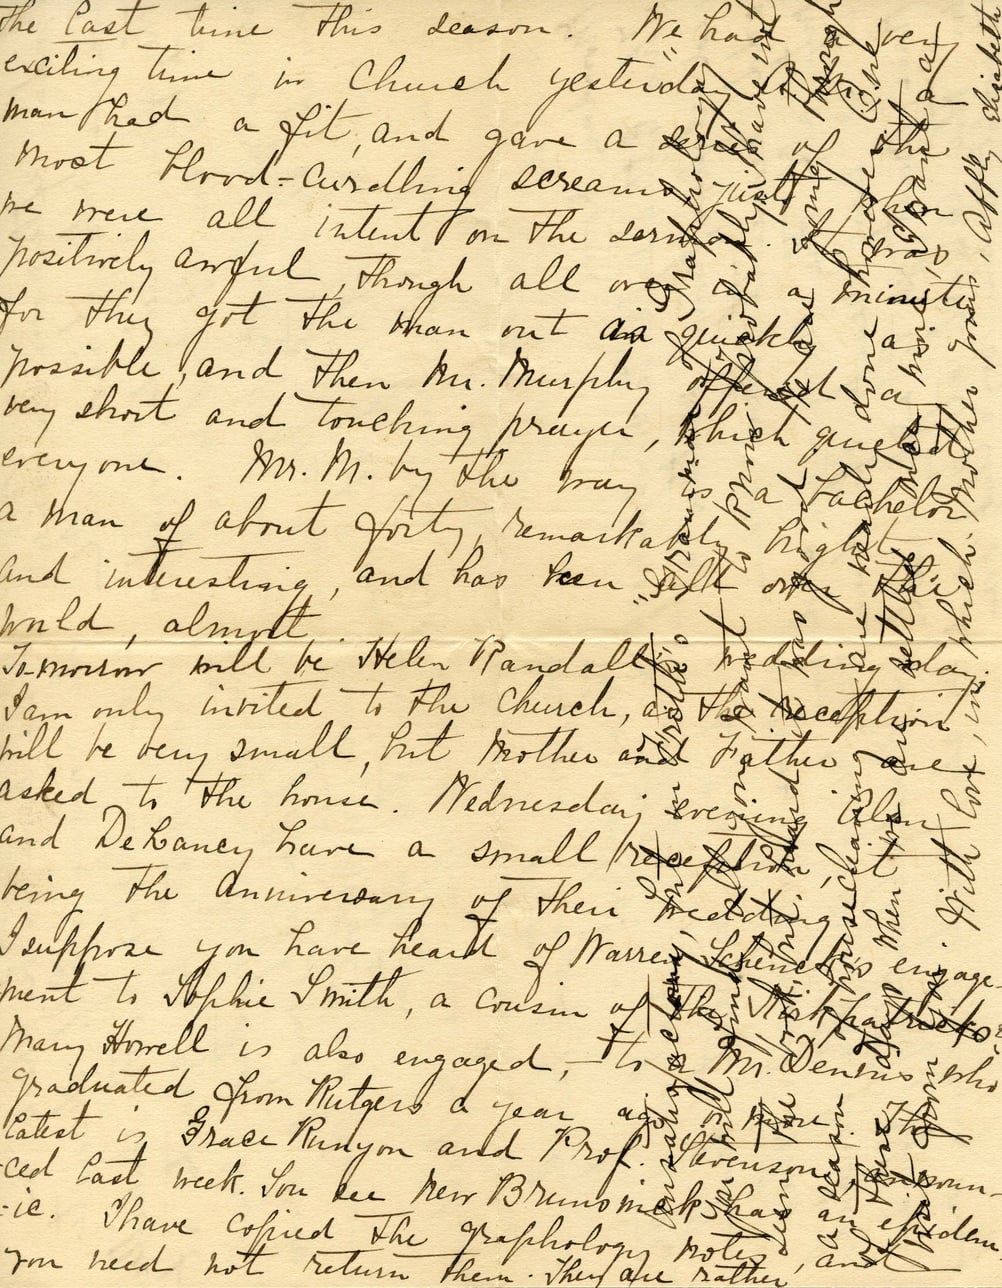 the last time this season. We had a very
exciting time in Church yesterday. A
man had a fit, and gave a series of the
most blood-curdling screams just when
we were all intent on the sermon. It was,
positively awful, though all over in a minute,
for they got the man out as quickly as
possible, and then Mr. Murphy offered a
very short and touching prayer, which quieted
everyone. Mr. M. by the way is a bachelor
a man of about forty, remarkably bright
and interesting, and has been all over the
world, almost.
To-morrow will be Helen Randall's wedding day.
I am only invited to the Church, as the reception
will be very small, but Mother and Father are
asked to the house. Wednesday evening Alan
and DeLancey have a small reception, it
being the anniversary of their wedding.
I suppose you have heard of Warren Schenck's engage-
ment to Sophie Smith, a cousin of the Kirkpatricks.
Mary Howell is also engaged, - to a Mr. Dennis who
graduated from Rutgers a year ago or more. The
latest is Grace Runyon and Prof. Stevenson, announ-
ced last week. You see New Brunswick has an epidem-
-ic. I have copied the graphology notes,
you need not return them. They are rather
unsatisfactory, but in
"Graphology"
you will find all you want to know probably. I have in
the work. I have
a season of housecleaning are nearly done
and these days when we are settled
With love, in which Mother joins, Affly Elizabeth